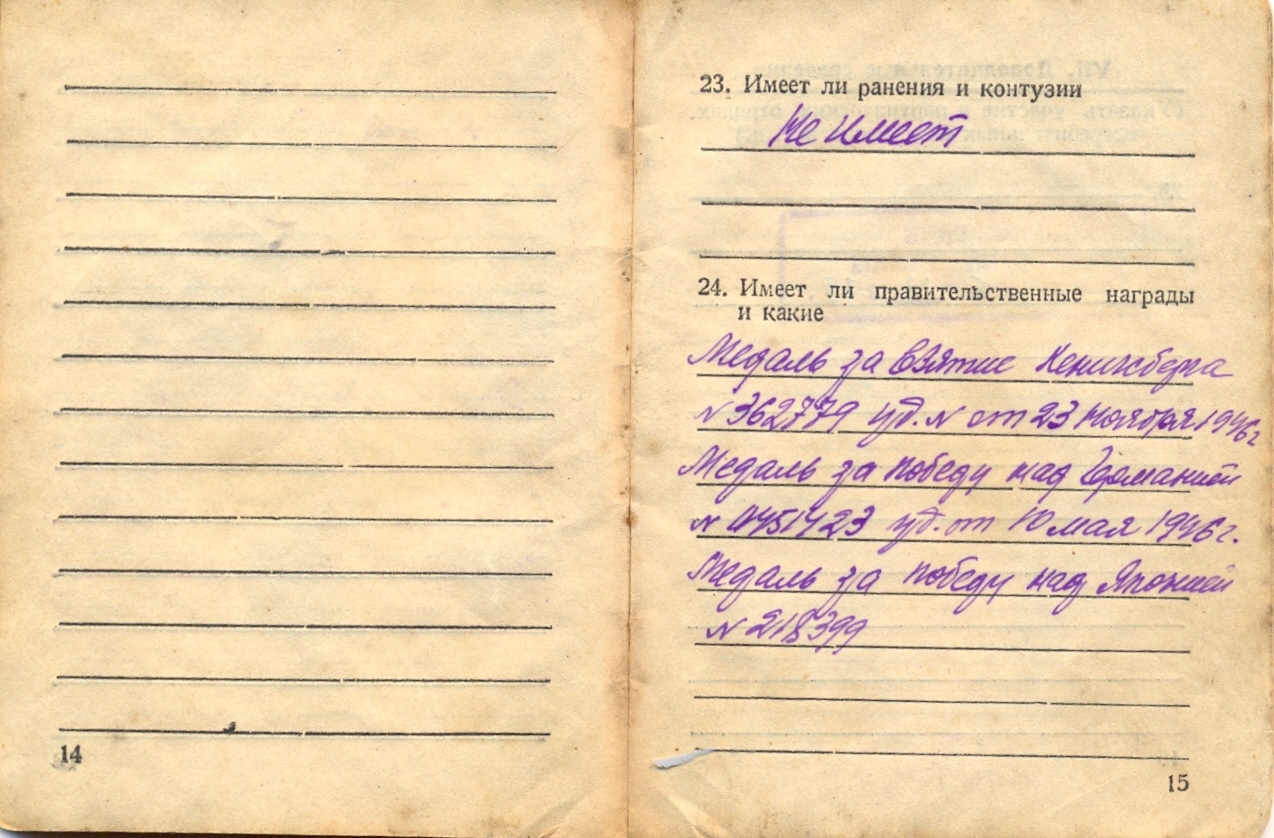 14
23. Имеет ли ранения и контузии
Не имеет
24. Имеет ли правительственные награды
и какие
Медаль за взятие Кенигсберга
N 362779 уд. N от 23 ноября 1946 г
Медаль за победу над Германией
N 0451423 уд. от 10 мая 1946 г.
Медаль за победу над Японией
N 218399
15